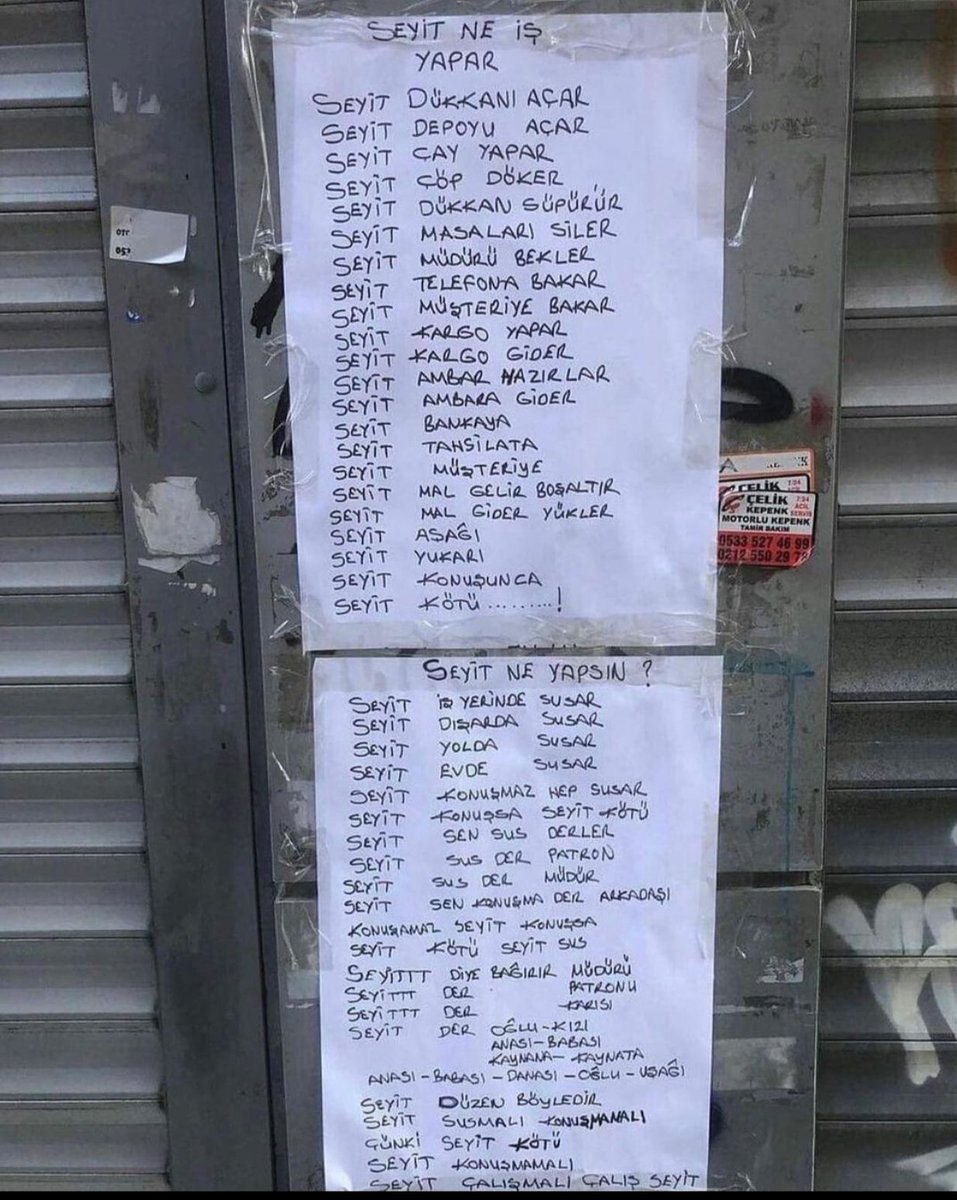 SEYİT NE İŞ
YAPAR
SEYİT DÜKKANI AÇAR
SEYİT DEPOYU AÇAR
SEYİT ÇAY YAPAR
SEYİT ÇÖP DÖKER
SEYİT DÜKKAN SÜPÜRÜR
SEYİT MASALARI SİLER
SEYİT MÜDÜRÜ BEKLER
SEYİT TELEFONA BAKAR
SEYİT MÜŞTERİYE BAKAR
SEYİT KARGO YAPAR
SEYİT KARGO GİDER
SEYİT AMBAR HAZIRLAR
SEYİT AMBARA GİDER
SEYİT BANKAYA
SEYİT TAHSİLATA
SEYİT MÜŞTERİYE
SEYİT MAL GELİR BOŞALTIR
SEYİT MAL GİDER YÜKLER
SEYİT AŞAĞI
SEYİT YUKARI
SEYİT KONUŞUNCA
SEYİT KÖTÜ ........!
SEYİT NE YAPSIN ?
SEYİT İŞ YERİNDE SUSAR
SEYİT DIŞARDA SUSAR
SEYİT YOLDA SUSAR
SEYİT EVDE SUSAR
SEYİT KONUŞMAZ HEP SUSAR
SEYİT KONUŞSA SEYİT KÖTÜ
SEYİT SEN SUS DERLER
SEYİT SUS DER PATRON
SEYİT SUS DER MÜDÜR
SEYİT SEN KONUŞMA DER ARKADAŞI
KONUŞAMAZ SEYİT KONUŞSA
SEYİT KÖTÜ SEYİT SUS
SEYİTTT DİYE BAĞIRIR MÜDÜRÜ
SEYİTTT DER PATRONU
SEYİTTT DER KARISI
SEYİT DER OĞLU-KIZI
ANASI-BABASI
KAYNANA-KAYNATA
ANASI-BABASI-DANASI-OĞLU-UŞAĞI
SEYİT DÜZEN BÖYLEDİR
SEYİT SUSMALI KONUŞMANALI
ÇÜNKİ SEYİT KÖTÜ
SEYİT KONUŞMAMALI
SEYİT ÇALIŞMALI ÇALIŞ SEYİT
OTO
ÇELİK
7/24
ACİL
ÇELİK
KEPENK
7/24
ACİL
SERVİS
MOTORLU KEPENK
TAMİR BAKIM
0533 527 46 99